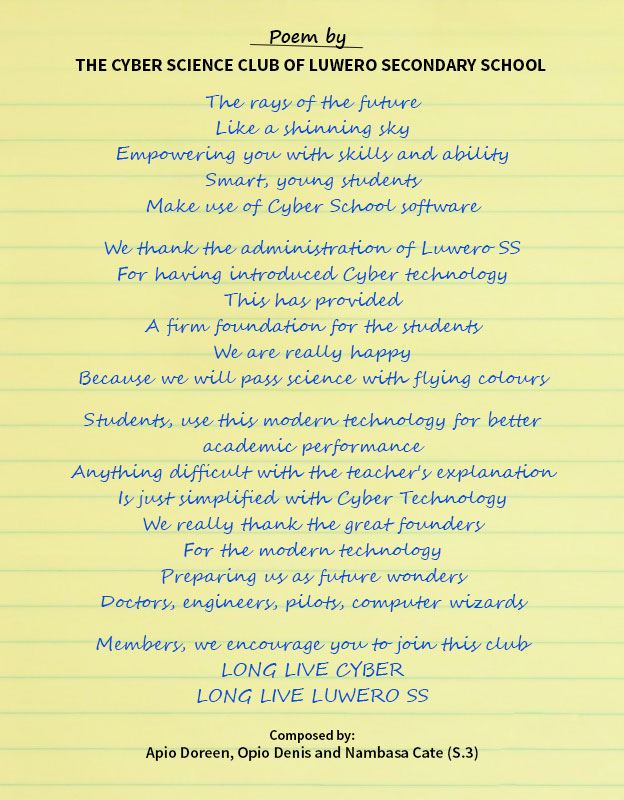 Poem by
THE CYBER SCIENCE CLUB OF LUWERO SECONDARY SCHOOL
The rays of the future
Like a shinning sky
Empowering you with skills and ability
Smart, young students
Make use of Cyber School software
We thank the administration of Luwero SS
For having introduced Cyber technology
This has provided
A firm foundation for the students
We are really happy
Because we will pass science with flying colours
Students, use this modern technology for better
academic performance
Anything difficult with the teacher's explanation
Is just simplified with Cyber Technology
We really thank the great founders
For the modern technology
Preparing us as future wonders
Doctors, engineers, pilots, computer wizards
Members, we encourage you to join this club
LONG LIVE CYBER
LONG LIVE LUWERO SS
Composed by:
Apio Doreen, Opio Denis and Nambasa Cate (S.3)